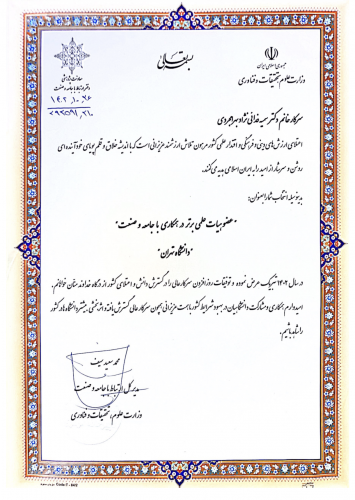 بسمه تعالی
جمهوری اسلامی ایران
وزارت علوم، تحقیقات و فناوری
معاونت پژوهشی
دفتر ارتباط با جامعه و صنعت
۱۴۰۲،۱۰،۲۶
سرکار خانم دکتر
اعتلای ارزش‌های دینی و فرهنگی و اقتدار علمی کشور مرهون تلاش ارزشمند عزیزانی است که با اندیشه خلاق و قلم پویای خود آینده‌ای
روشن و سرشار از امید را به ایران اسلامی هدیه می‌کنند.
بدینوسیله انتخاب شما را بعنوان:
"عضو هیات علمی برتر در همکاری با جامعه و صنعت"
"دانشگاه تهران"
در سال ۱۴۰۲ تبریک عرض نموده و توفیقات روزافزون سرکار عالی را در گسترش دانش و اعتلای کشور از درگاه خداوند منان خواهانم.
امیدوارم همکاری و مشارکت دانشگاهیان در بهبود شرایط کشور با همت عزیزانی همچون سرکار عالی گسترش یافته و اثربخشی بیشتر دانشگاه‌ها در کشور
را شاهد باشیم.
محمد سعید سیف
مدیر کل ارتباط با جامعه و صنعت
وزارت علوم، تحقیقات و فناوری